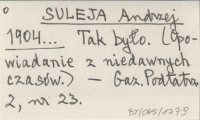 SULEJA Andrzej
1904... Tak było. (Opo-
wiadanie z niedawnych
czasów.) — Gaz. Podtatrz.
2, nr 23.